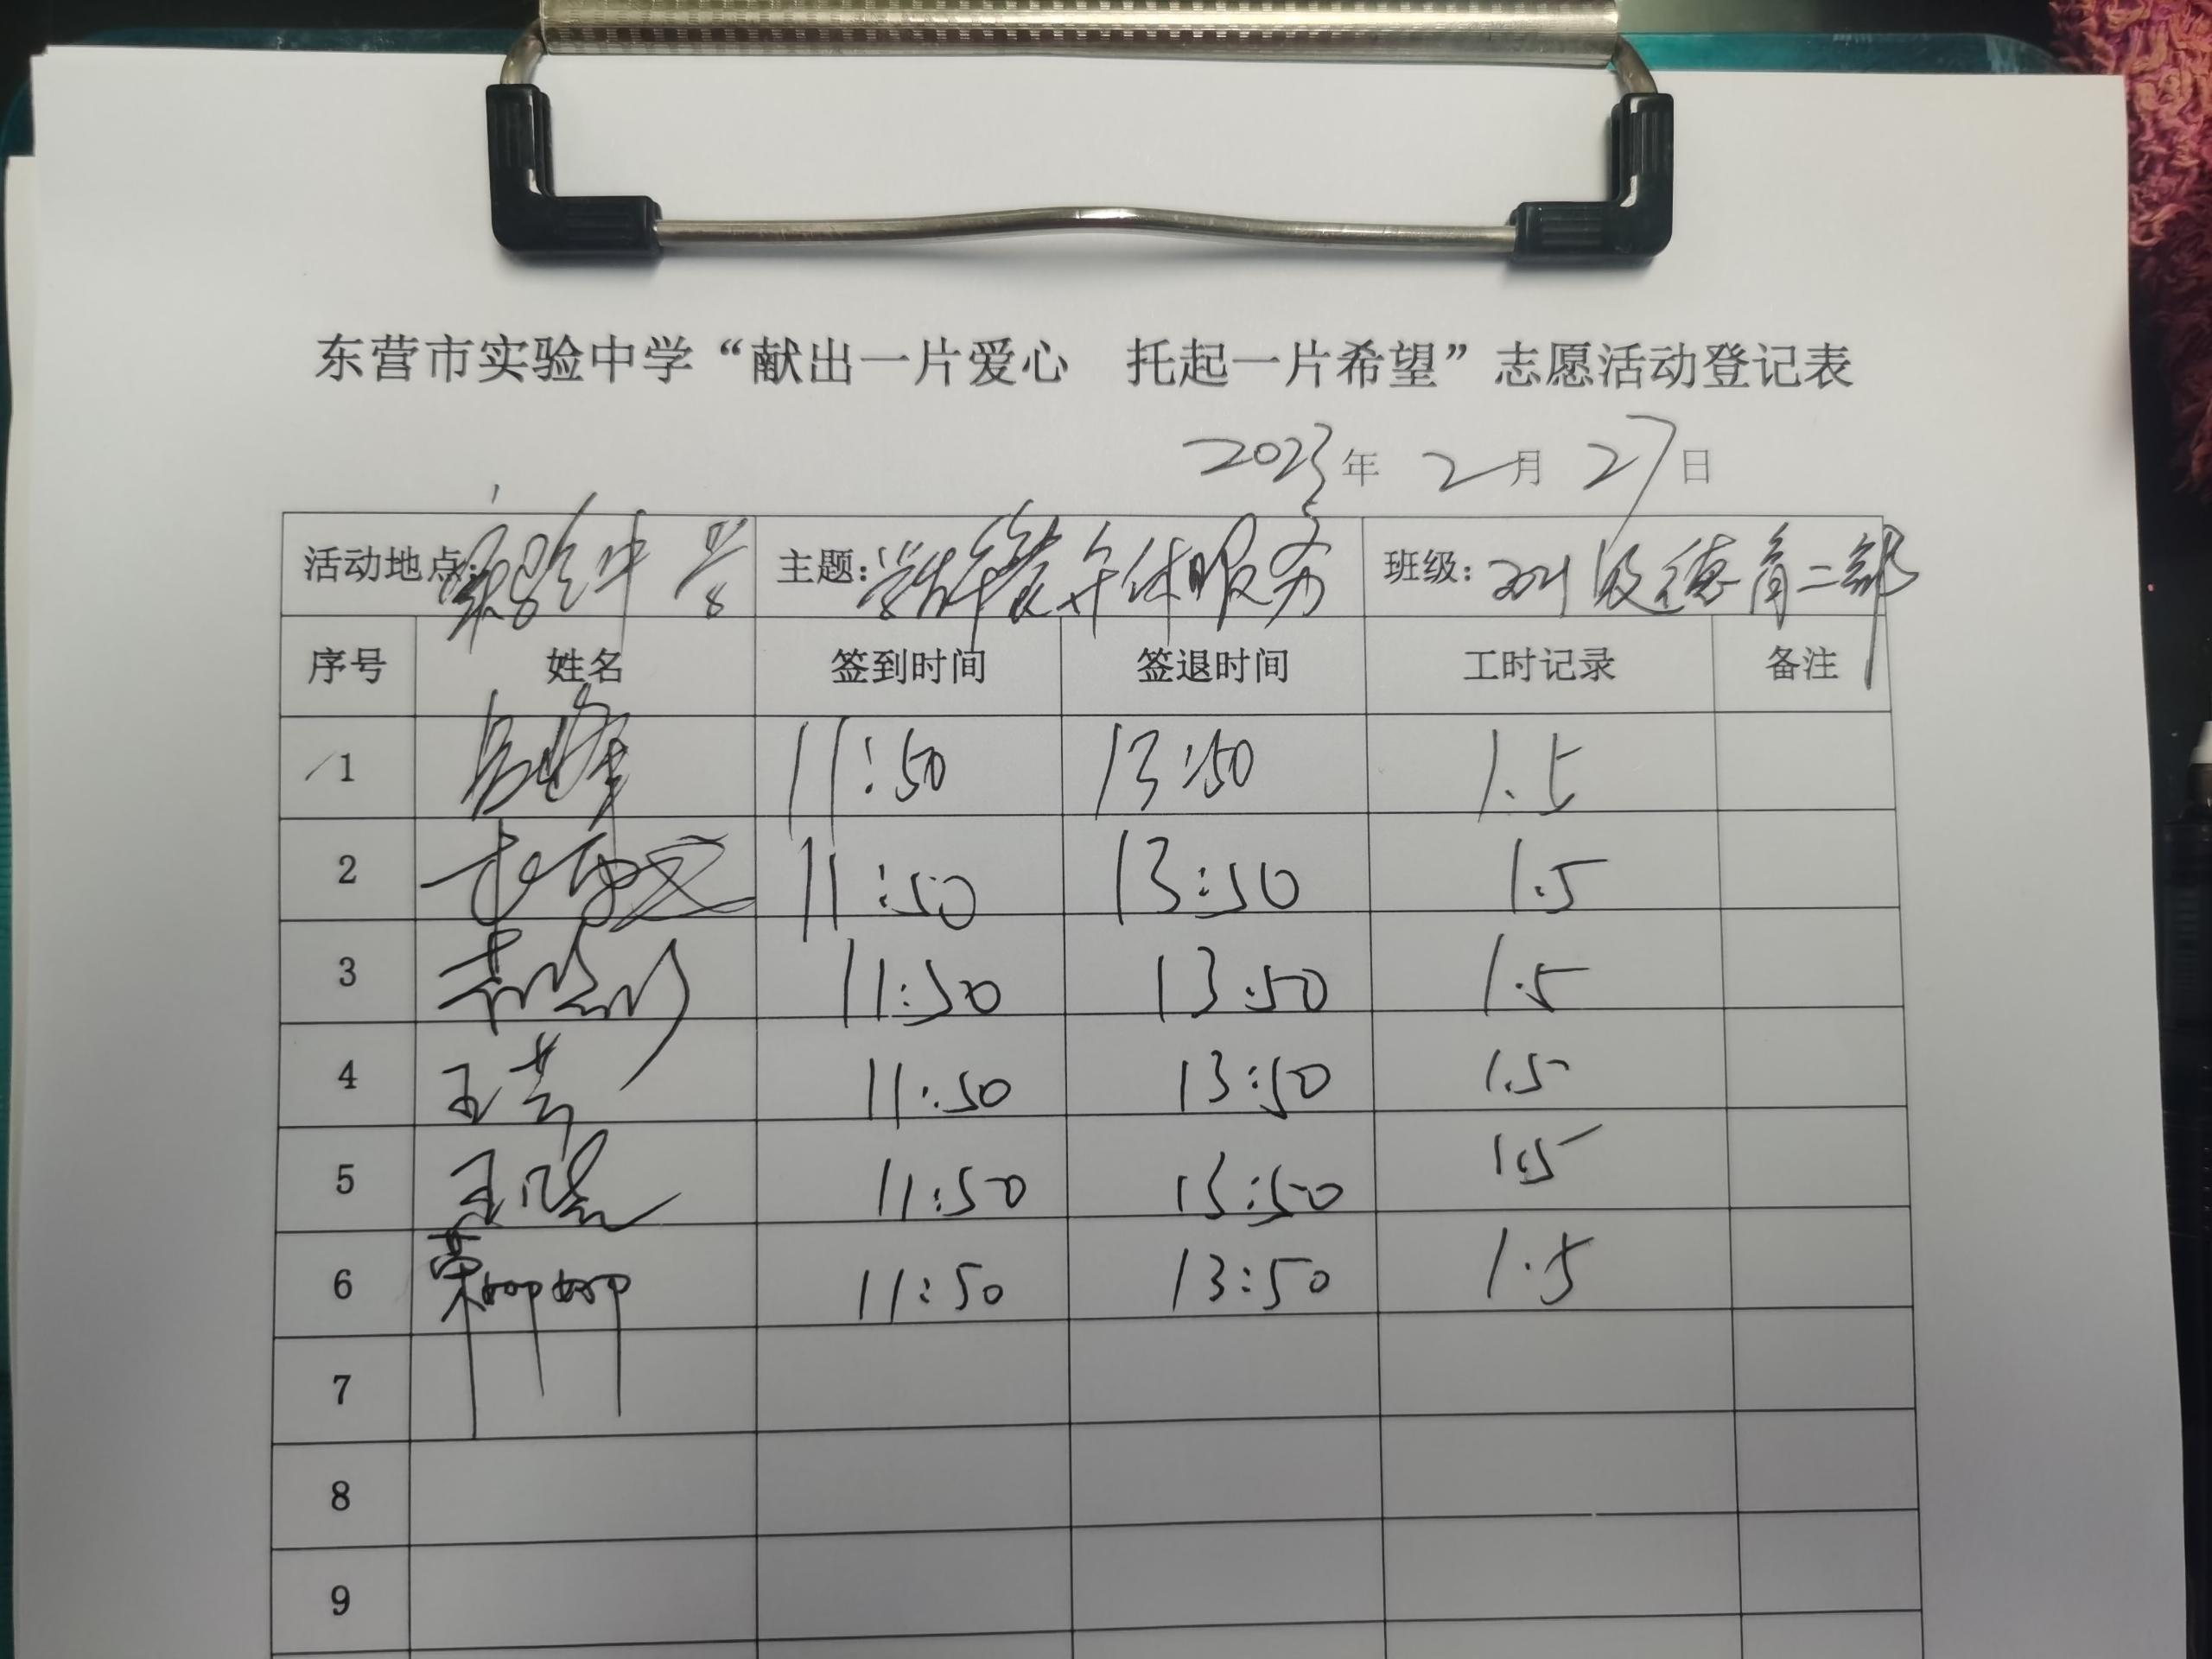 东营市实验中学“献出一片爱心 托起一片希望”志愿活动登记表
2023年 2月 27日
活动地点：实验中学 主题： 午休服务 班级：2021级德育二部
序号 姓名 签到时间 签退时间 工时记录 备注
1 11:50 13:50 1.5
2 11:50 13:50 1.5
3 11:50 13:50 1.5
4 王芸 11:50 13:50 1.5
5 王晓 11:50 13:50 1.5
6 荣娜娜 11:50 13:50 1.5
7
8
9